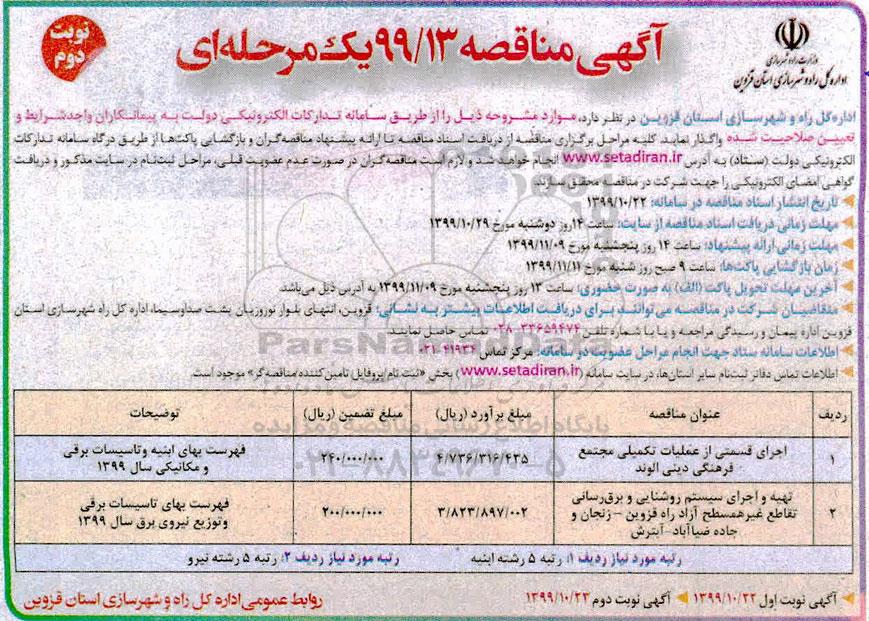 وزارت راه و شهرسازی
اداره کل راه و شهرسازی استان قزوین
آگهی مناقصه ۹۹/۱۳ یک مرحله‌ای
نوبت دوم
اداره کل راه و شهرسازی استان قزوین در نظر دارد، موارد مشروحه ذیل را از طریق سامانه تدارکات الکترونیکی دولت به پیمانکاران واجدشرایط و
تعیین صلاحیت شده واگذار نماید. کلیه مراحل برگزاری مناقصه از دریافت اسناد مناقصه تا ارائه پیشنهاد مناقصه‌گران و بازگشایی پاکت‌ها از طریق درگاه سامانه تدارکات
الکترونیکی دولت (ستاد) به آدرس www.setadiran.ir انجام خواهد شد و لازم است مناقصه‌گران در صورت عدم عضویت قبلی، مراحل ثبت‌نام در سایت مذکور و دریافت
گواهی امضای الکترونیکی را جهت شرکت در مناقصه محقق سازند.
تاریخ انتشار اسناد مناقصه در سامانه: ۱۳۹۹/۱۰/۲۲
مهلت زمانی دریافت اسناد مناقصه از سایت: ساعت ۱۴ روز دوشنبه مورخ ۱۳۹۹/۱۰/۲۹
مهلت زمانی ارائه پیشنهاد: ساعت ۱۴ روز پنجشنبه مورخ ۱۳۹۹/۱۱/۰۹
زمان بازگشایی پاکت‌ها: ساعت ۹ صبح روز شنبه مورخ ۱۳۹۹/۱۱/۱۱
آخرین مهلت تحویل پاکت (الف) به صورت حضوری: ساعت ۱۳ روز پنجشنبه مورخ ۱۳۹۹/۱۱/۰۹ به آدرس ذیل می‌باشد.
متقاضیان شرکت در مناقصه می‌توانند، برای دریافت اطلاعات بیشتر به نشانی: قزوین، انتهای بلوار نوروزیان پشت صداوسیما، اداره کل راه شهرسازی استان
قزوین اداره پیمان و رسیدگی مراجعه و یا با شماره تلفن ۳۳۶۵۹۴۷۴-۰۲۸ تماس حاصل نمایند.
اطلاعات سامانه ستاد جهت انجام مراحل عضویت در سامانه: مرکز تماس ۴۱۹۳۴-۰۲۱
اطلاعات تماس دفاتر ثبت‌نام سایر استان‌ها، در سایت سامانه (www.setadiran.ir) بخش «ثبت نام /پروفایل تامین‌کننده/مناقصه‌گر» موجود است.
ParsNamadData
پایگاه اطلاع رسانی مناقصه و مزایده
۰۲۱-۸۸۳۴۹۶۷۰-۵
ردیف عنوان مناقصه مبلغ برآورد (ریال) مبلغ تضمین (ریال) توضیحات
۱ اجرای قسمتی از عملیات تکمیلی مجتمع فرهنگی دینی الوند ۴/۷۳۶/۳۱۶/۴۳۵ ۲۴۰/۰۰۰/۰۰۰ فهرست بهای ابنیه وتاسیسات برقی و مکانیکی سال ۱۳۹۹
۲ تهیه و اجرای سیستم روشنایی و برق‌رسانی تقاطع غیرهمسطح آزاد راه قزوین – زنجان و جاده ضیاآباد-آبترش ۳/۸۲۳/۸۹۷/۰۰۲ ۲۰۰/۰۰۰/۰۰۰ فهرست بهای تاسیسات برقی وتوزیع نیروی برق سال ۱۳۹۹
رتبه مورد نیاز ردیف ۱: رتبه ۵ رشته ابنیه رتبه مورد نیاز ردیف ۲: رتبه ۵ رشته نیرو
آگهی نوبت اول ۱۳۹۹/۱۰/۲۲ آگهی نوبت دوم ۱۳۹۹/۱۰/۲۳
روابط عمومی اداره کل راه و شهرسازی استان قزوین